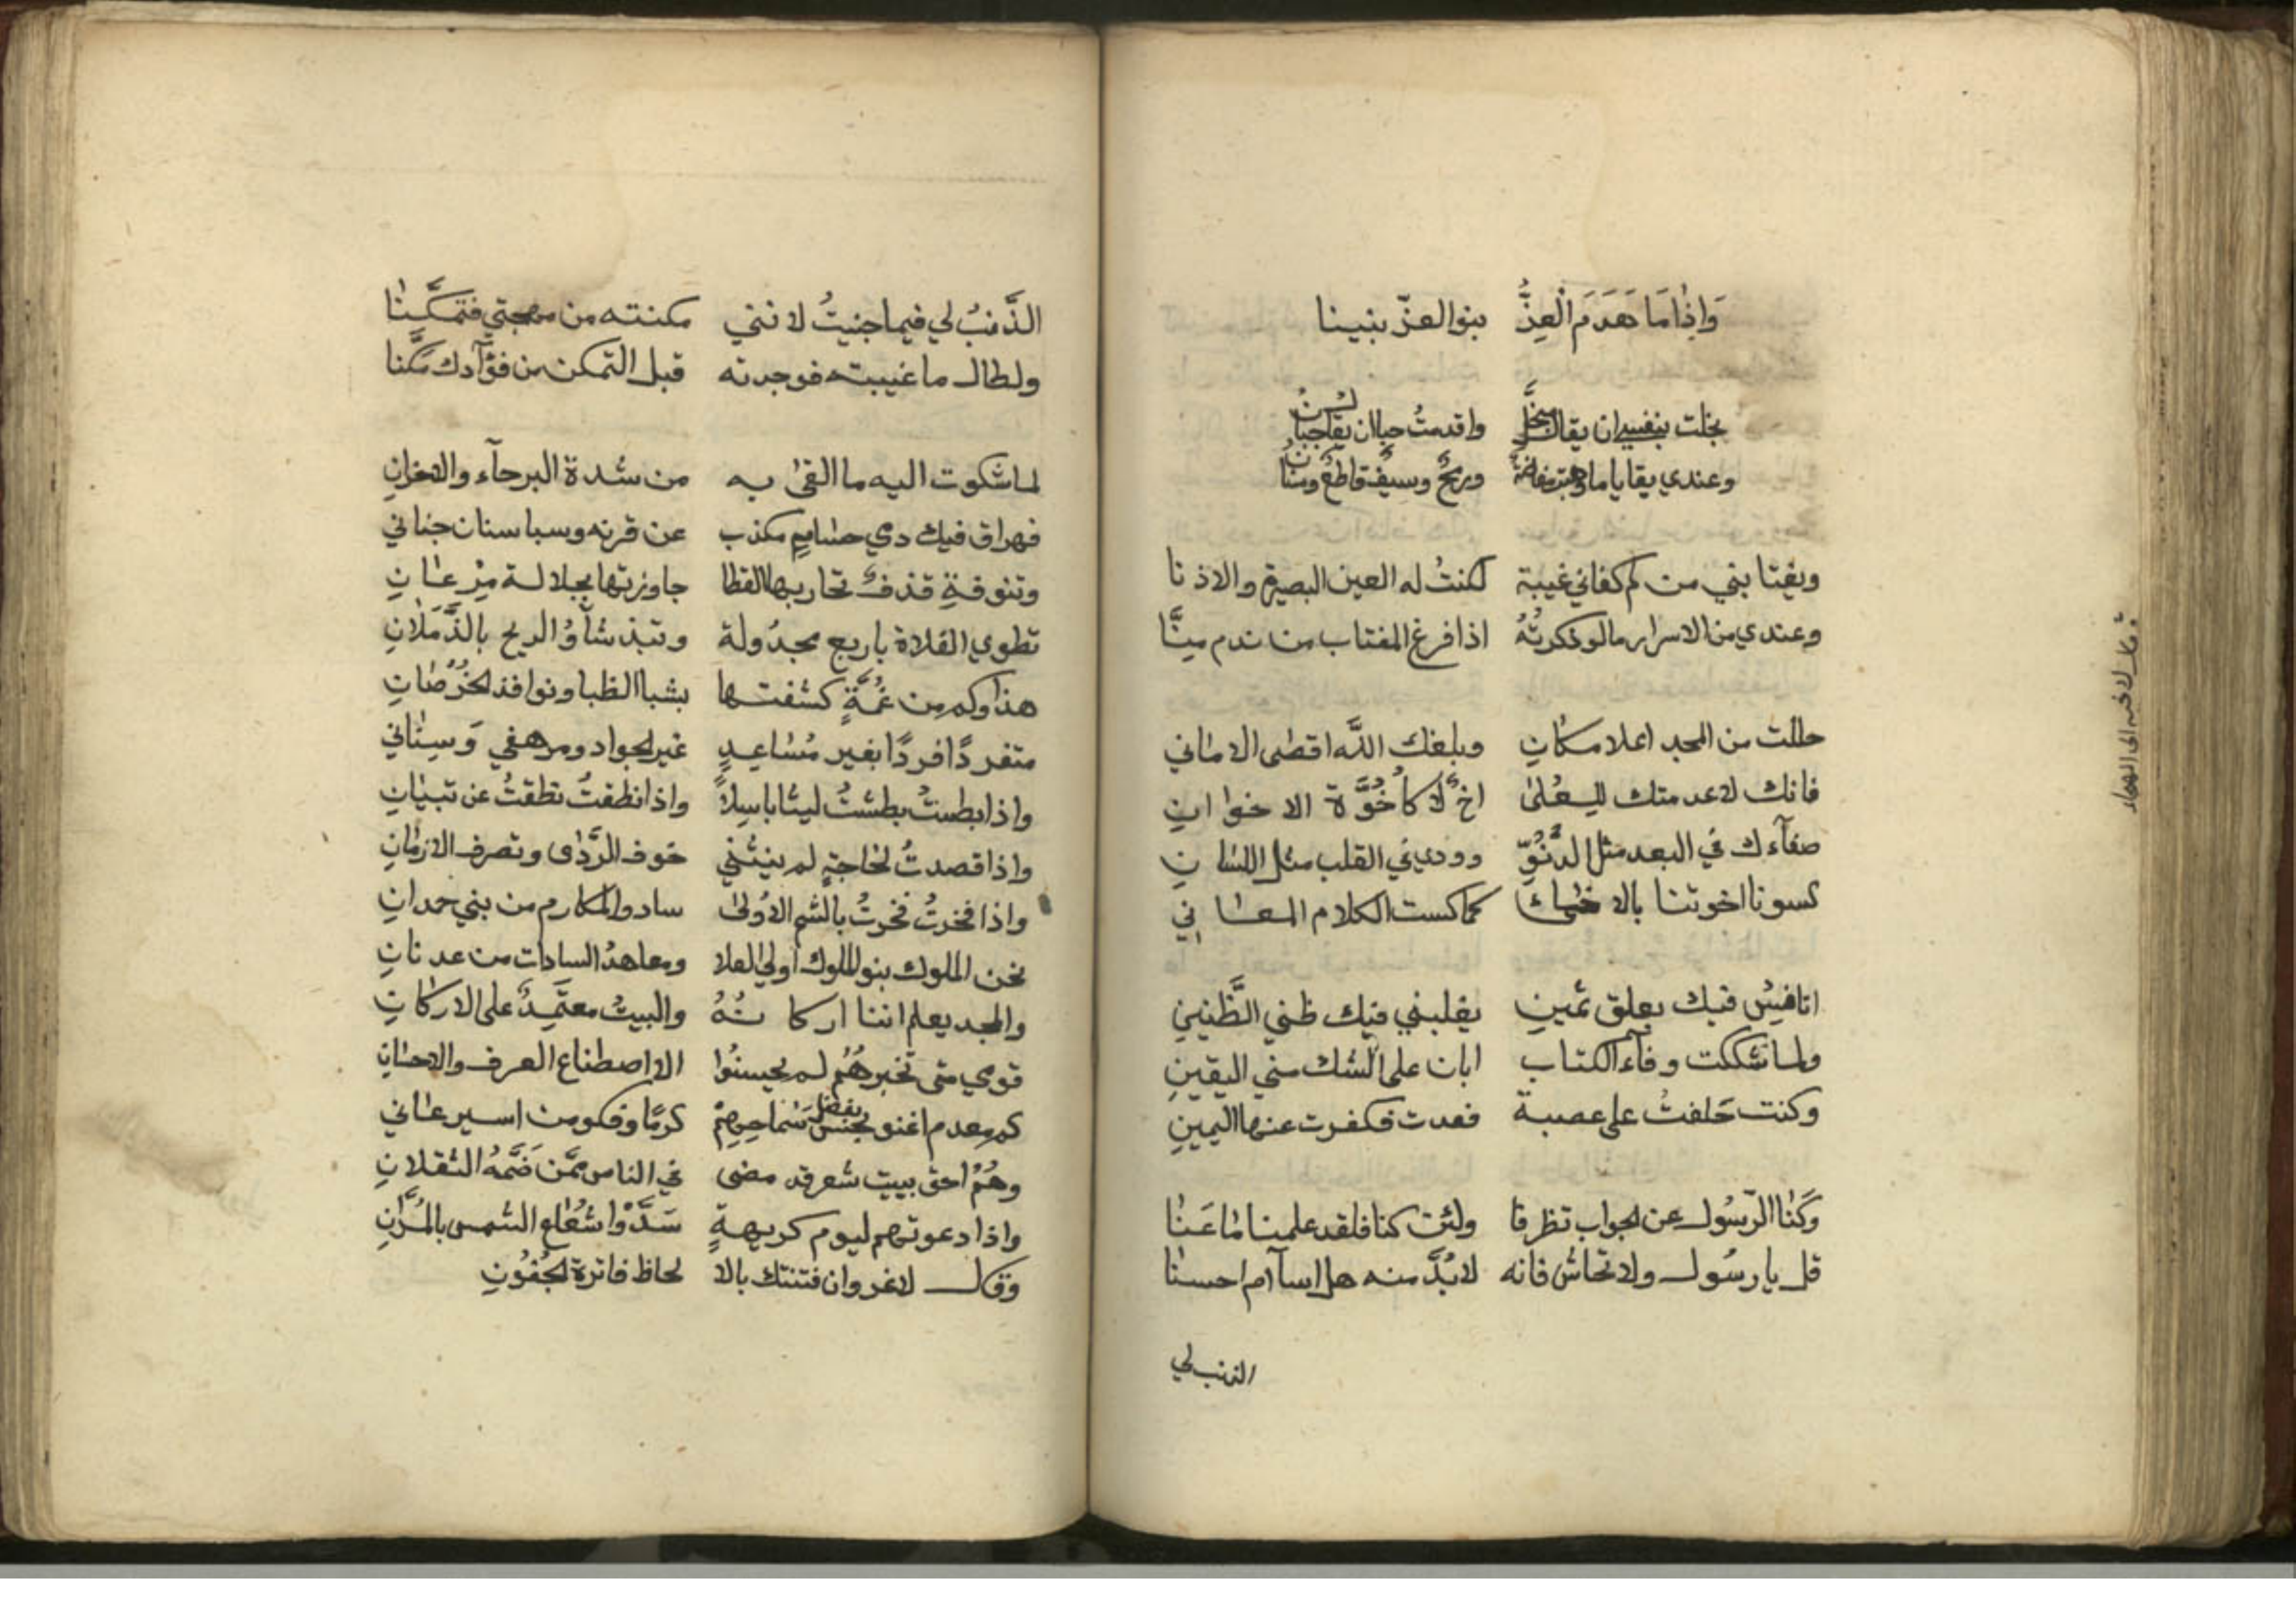 وَاِذَا مَا هَدَمَ الْعِزُّ بنو العزّ بنينا
بخلت بنفسي ان يقال مبخّل واقدمتُ جبا ان يقال جبان
وعندي بقايا ما وهبت مفاضةٌ ورمحٌ وسيفٌ قاطعٌ وسنان
ويغتابني من لم كفاني غيبة لكنتُ له العين البصيرة والاذنا
وعندي من الاسرار ما لو ذكرتُهُ اذا فرغ المغتاب من ندم سِنَّا
حللت من المجد اعلا مكانِ وبلغك اللّه اقصى الاماني
فانك لا عدمتك للعُلىٰ اخٌ لا كأخُوَّة الاخوانِ
صفآءك في البعد مثل الدُنُوِّ وودي في القلب مثل اللسانِ
كسونا اخوتنا بالاخاء كما كست الكلام المعاني
انافيسُ فيك بعلق ثمينِ يغلبني فيك ظني الظَّنيني
ولما تشككت وفآء الكتاب ابان على الشك مني اليقينِ
وكنت حَلفتُ على عصبة فعدت فكفرت عنها اليمينِ
وكَنَا الرّسُول عن الجواب تظرفا ولئن كنا فلقد علمنا ما عَنَا
قل يا رسُول ولا تحاش فانه لابُدَّ منه هل اسآ ام احسنا
الذنب لي
الذَّنبُ لي فيما جنيتُ لانني مكنته من مهجتي فتمكَّنا
ولطال ما غيبته فوجدته قبل التمكن من فؤآدك مَكَّنا
لما شكوت اليه ما القى به من شدة البرحآء والاحزانِ
فهراق فيك دمي حسامٍ مكذب عن قرنه وسبا سنان جناني
وتنوفةٍ قذفٌ تحار بها القطا جاوزتها بجلالة مِذْعانِ
تطوي الفلاة باربع مجدُولة وتبذ شأوُ الريح بالذَّمَلانِ
هذا وكم من غُمَّةٍ كشفتها بشبا الظبا ونوافذ الخُرْصَانِ
متفردًا فردًا بغير مُسَاعِدٍ غير الجواد ومرهفي وَسِنَاني
واذا بطشتُ بطشتُ ليثا باسِلاً واذا نطقتُ نطقتُ عن تبيانِ
واذا قصدتُ لحاجةٍ لم يثنني خوف الرَّدَى وتصرف الازمانِ
واذا فخرتُ فخرتُ بالشم الاُولى سادو المكارم من بني حمدانِ
نحن الملوك بنو الملوك اُولي العلا ومعاهدُ السادات من عدنانِ
والمجد يعلم اننا اركانُهُ والبيتُ معتَمِدٌ على الاركانِ
قومي متى تخبرهُمُ لم يحسنُوا الا اصطناع العرف والاحسانِ
كم معدم اغنو بفضل سَماحِهِمْ كرمًا وفكو من اسير عاني
وهُمْ احق ببيت شعر قد مضى في الناس ممَّن ضَمَّهُ الثقلانِ
واذا دعوتهم ليوم كريهةٍ سَدَّوْا شُعَاع الشمس بالمُرَّانِ
وقال لا غرو ان فتنتك بالا لحاظ فاترة الجُفُونِ